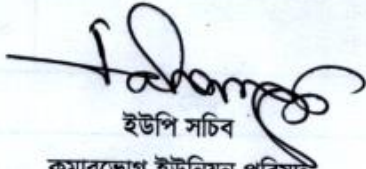 ইউপি সচিব
কুমারভোগ ইউনিয়ন পরিষদ